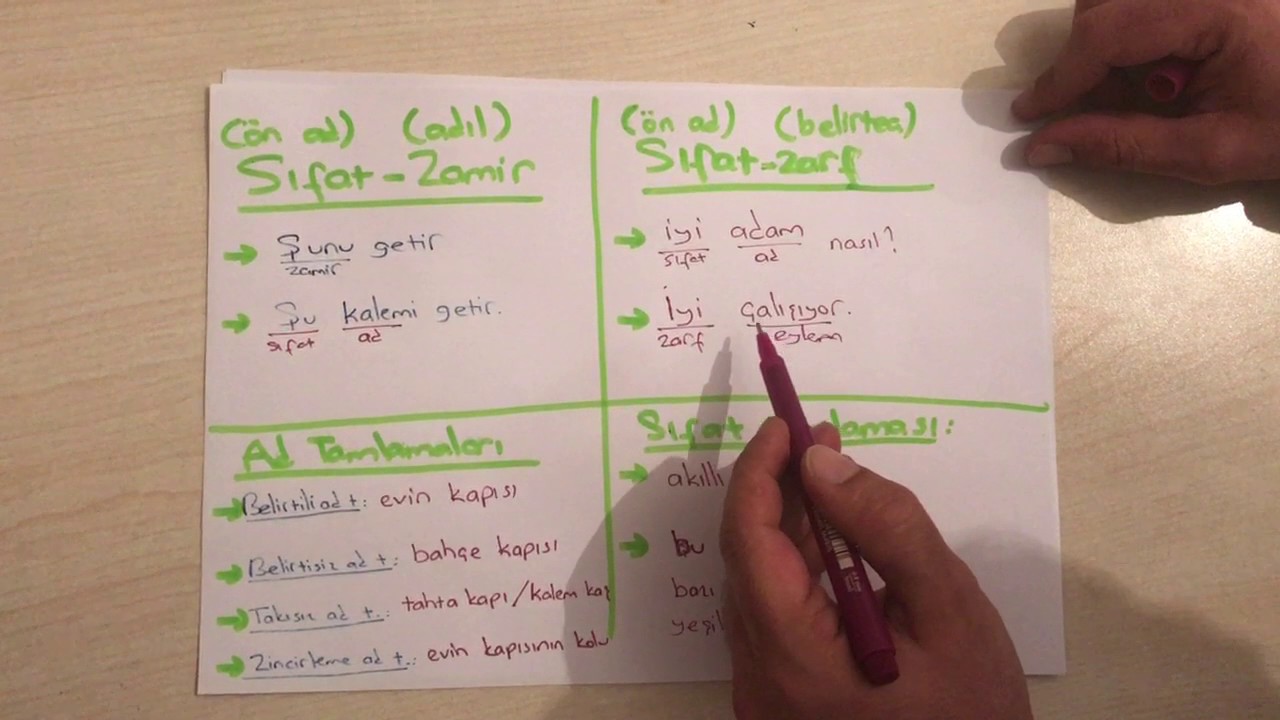 (ön ad) (adıl)
Sıfat-Zamir
Şunu getir
zamir
Şu kalemi getir.
sıfat ad
(ön ad) (belirteç)
Sıfat-zarf
iyi adam nasıl?
sıfat ad
İyi çalışıyor.
zarf eylem
Ad Tamlamaları
Belirtili ad t: evin kapısı
Belirtisiz ad t.: bahçe kapısı
Takısız ad t.: tahta kapı/kalem
Zincirleme ad t.: evin kapısının kolu
Sıfat
akıllı
bu
bazı
yeşil